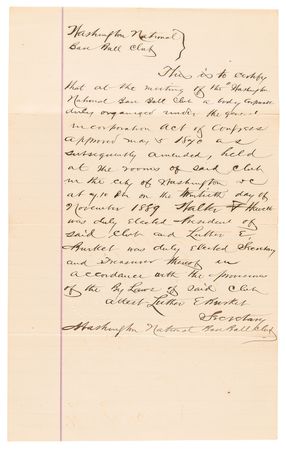 Washington National
Base Ball Club
This is to certify
that at the meeting of the "Washington
National Base Ball Club a body corporate
duly organized under the general
incorporation Act of Congress
approved May 5 1870 as
subsequently amended, held
at the rooms of said Club
in the city of Washington D C
at on the day of
November 1889 Walter F Hewett
was duly elected President of
said Club and Luther E
Burket was duly Elected Secretary
and Treasurer thereof in
accordance with the provisions
of the By Laws of said Club
attest Luther E Burket
Secretary
Washington National Base Ball Club